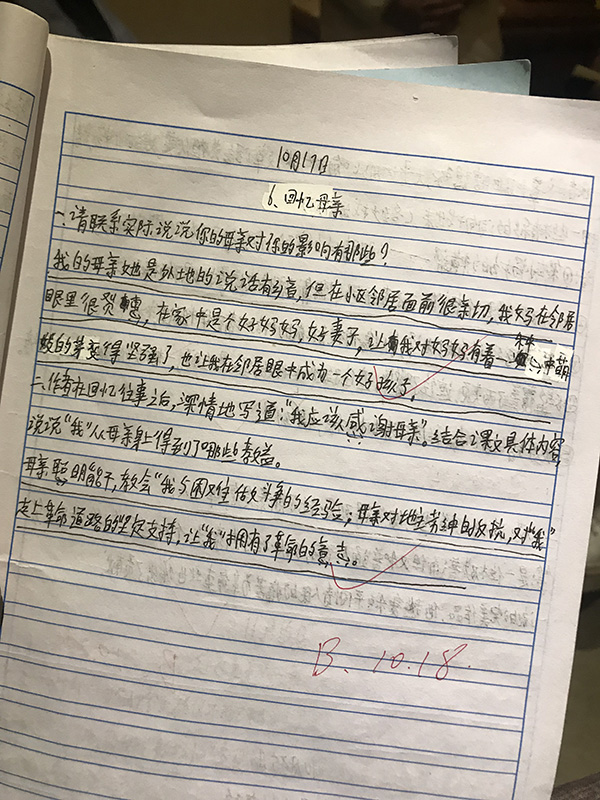 10月17日
6、回忆母亲
一、请联系实际说说你的母亲对你的影响有那些?
我的母亲她是外地的,说话有乡音,但在小区邻居面前很亲切,我妈在邻居
眼里很贤,在家中是个好妈妈,好妻子,让我对妈妈有着一
变得坚强了,也让我在邻居眼中成为一个好孩子。
二、作者在回忆往事之后,深情地写道:“我应该感谢母亲”。结合课文具体内容,
说说“我”从母亲身上得到了哪些教益。
母亲聪明能干,教会“我与困难作斗争的经验;母亲对地主的反抗,对“我”
走上革命道路的坚定支持,让“我”才拥有了革命的意志。
B. 10.18.